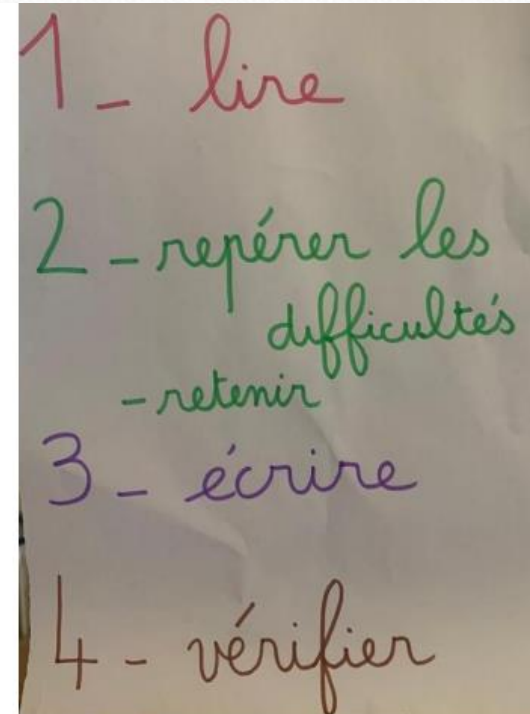 1- lire
2-repérer les
difficultés
-retenir
3- écrire
4- vérifier